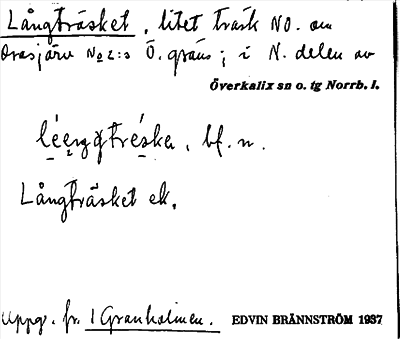 Långträsket, litet träsk NO. om
Orasjärv No 2:s Ö. gräns; i N. delen av
Överkalix sn o. tg Norrb. l.
bf. n.
Långträsket ek.
Uppg. fr. 1 Granholmen. EDVIN BRÄNNSTRÖM 1937